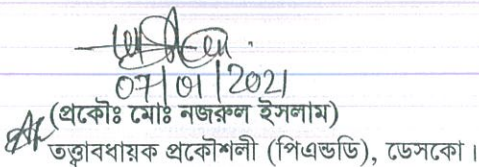 07/01/2021
(প্রকৌঃ মোঃ নজরুল ইসলাম)
তত্ত্বাবধায়ক প্রকৌশলী (পিএন্ডডি), ডেসকো।